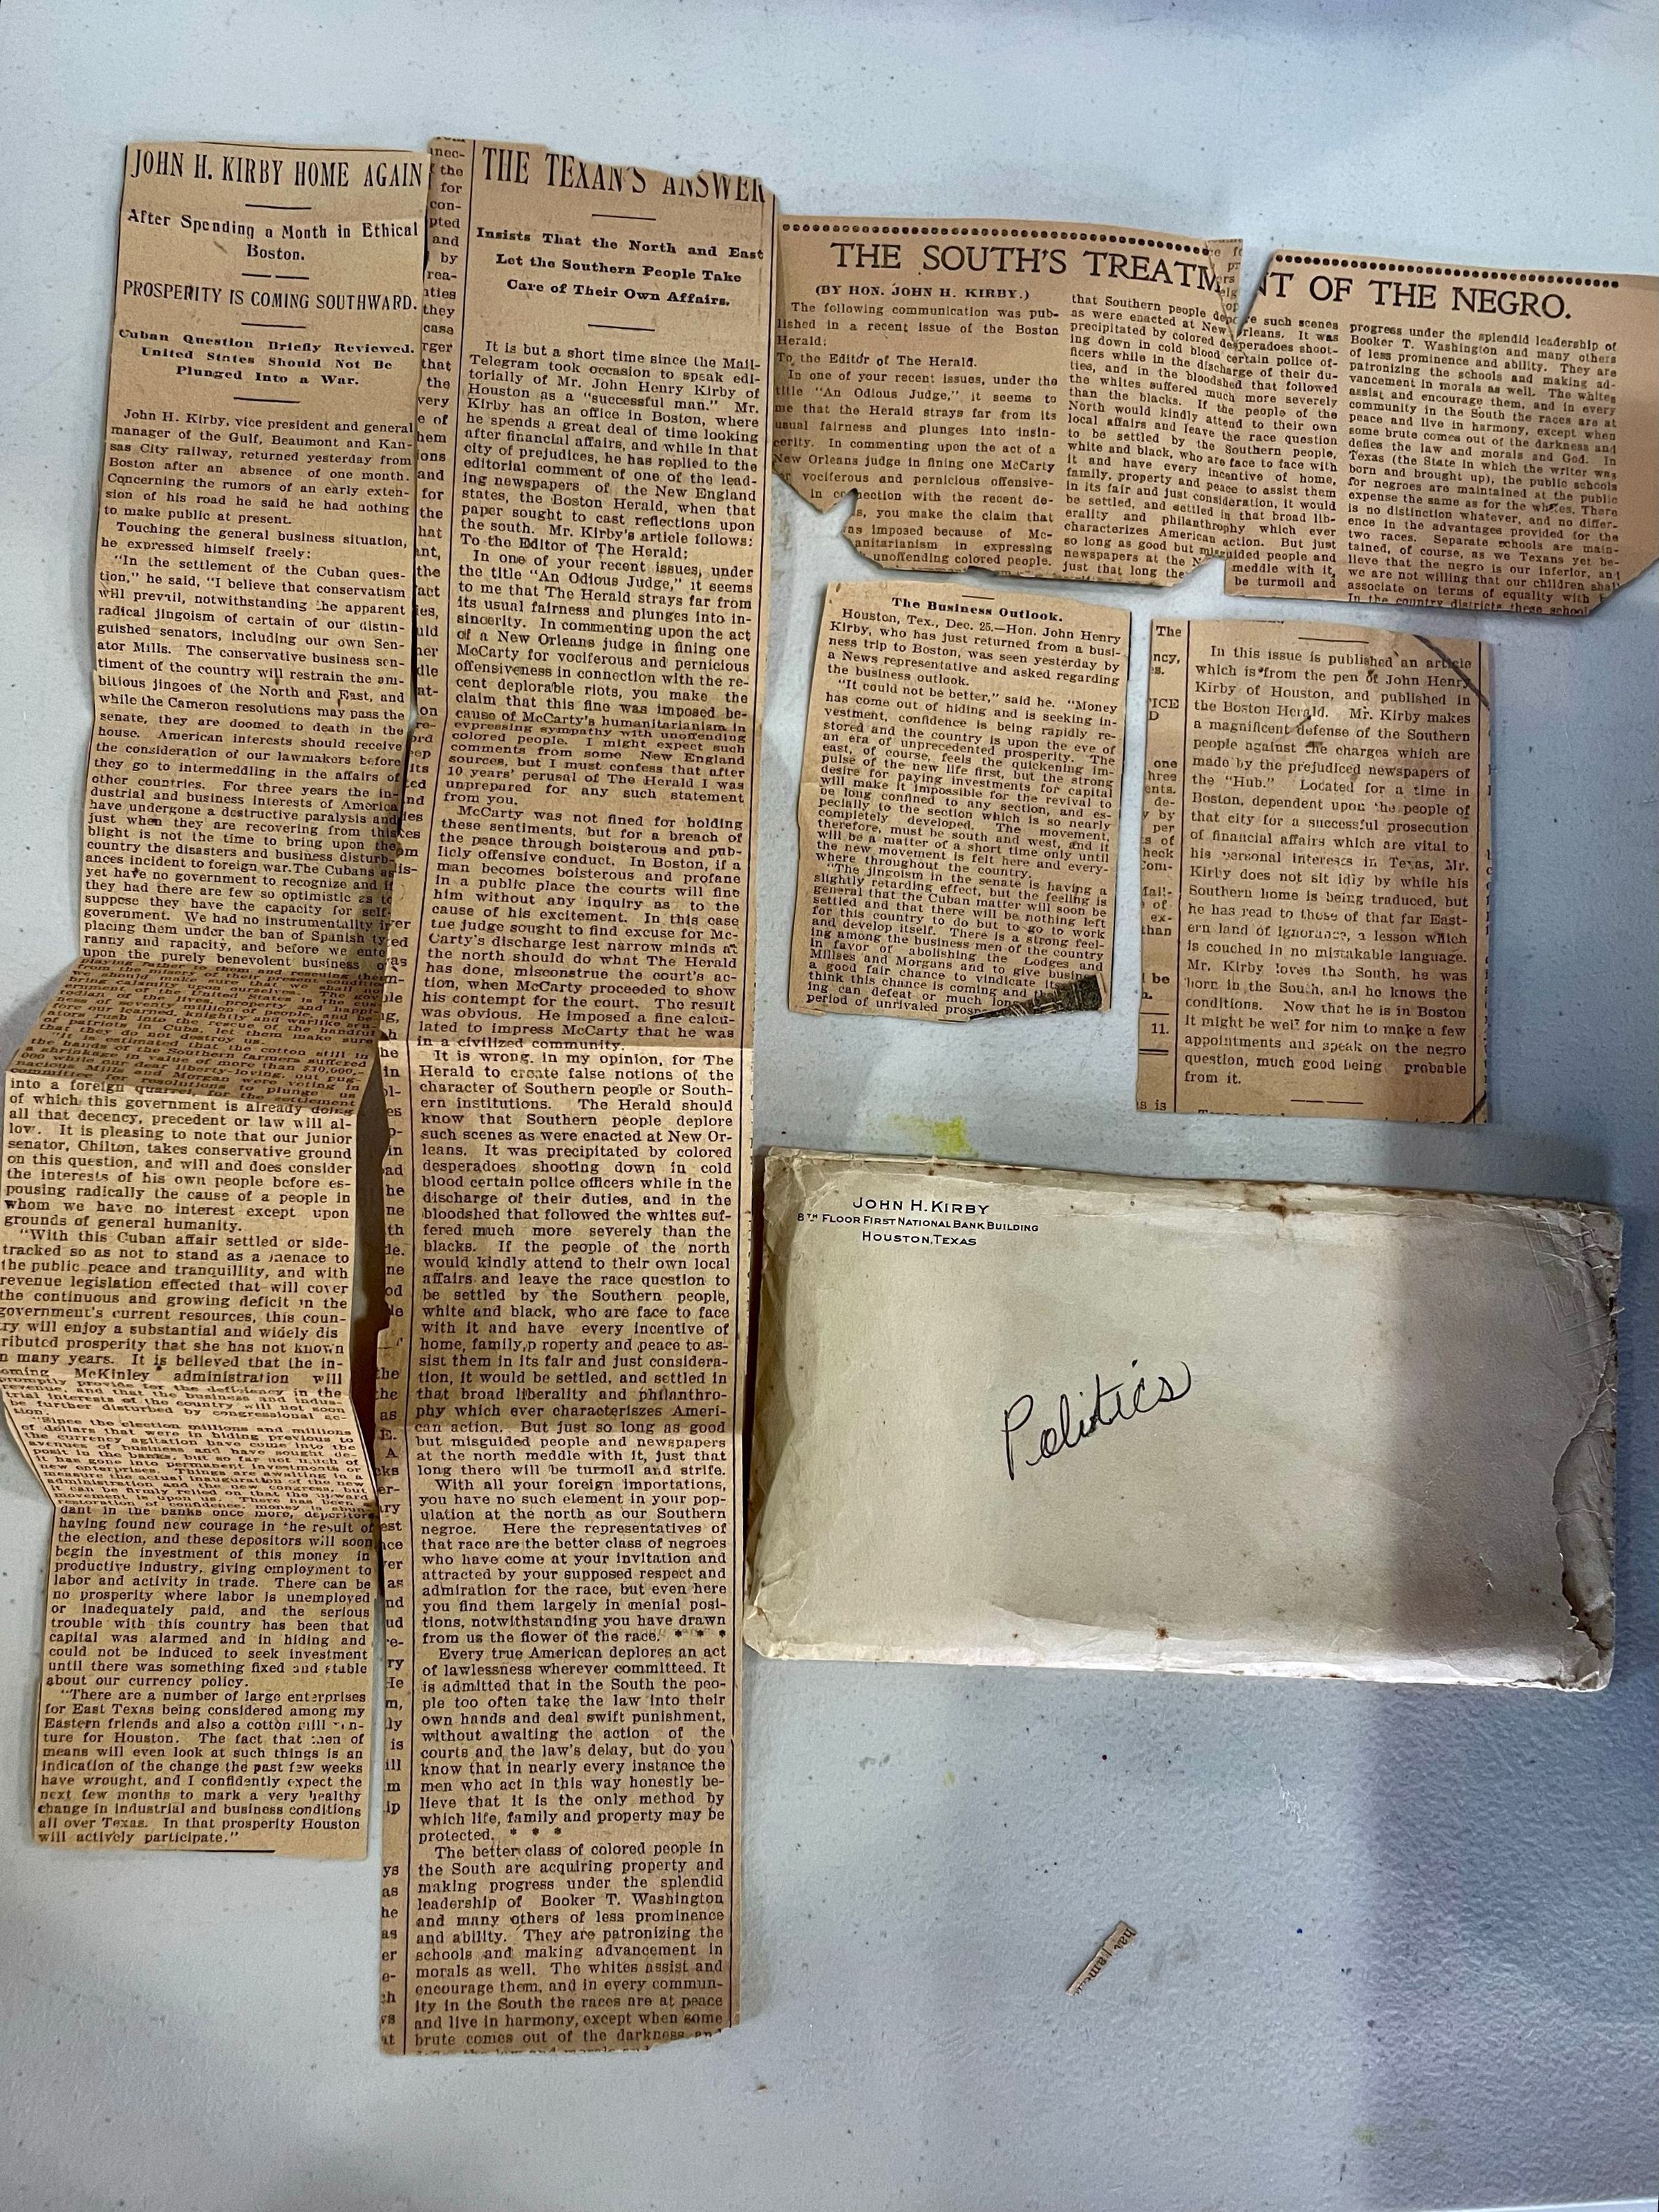 JOHN H. KIRBY HOME AGAIN
After Spending a Month in Ethical
Boston.
PROSPERITY IS COMING SOUTHWARD.
Cuban Question Briefly Reviewed.
United States Should Not Be
Plunged Into a War.
John H. Kirby, vice president and general
manager of the Gulf, Beaumont and Kan-
sas City railway, returned yesterday from
Boston after an absence of one month.
Concerning the rumors of an early exten-
sion of his road he said he had nothing
to make public at present.
Touching the general business situation,
he expressed himself freely:
"In the settlement of the Cuban ques-
tion," he said, "I believe that conservatism
will prevail, notwithstanding the apparent
radical jingoism of certain of our distin-
guished senators, including our own Sen-
ator Mills. The conservative business sen-
timent of the country will restrain the am-
bitious jingoes of the North and East, and
while the Cameron resolutions may pass the
senate, they are doomed to death in the
house. American interests should receive
the consideration of our lawmakers before
they go to intermeddling in the affairs of
other countries. For three years the in-
dustrial and business interests of America
have undergone a destructive paralysis and
just when they are recovering from this
blight is not the time to bring upon the
country the disasters and business disturb-
ances incident to foreign war. The Cubans as
yet have no government to recognize and if
they had there are few so optimistic as to
suppose they have the capacity for self-
government. We had no instrumentality in
placing them under the ban of Spanish ty-
ranny and rapacity, and before we ente
upon the purely benevolent business o
playing father to them and rescuing them
from the misery of their present condition
we should make sure that we shall no
bring calamity upon ourselves. The gov
ernment of the United States is the cus
todian of the lives, property and happi-
ness of seventy million of people, and be
fore our learned, knightly and warlike sen-
ators rush into the rescue of the handful
of patriots in Cuba, let them make sure
that they do not destroy us.
"It is estimated that the cotton still in
the hands of the Southern farmers suffered
a shrinkage in value of more than $10,000,-
000 while our dear liberty-loving, but pug-
nacious Mills and Morgan were voting in
committee for resolutions to plunge us
into a foreign quarrel, for the settlement
of which this government is already doing
all that decency, precedent or law will al-
low. It is pleasing to note that our junior
senator, Chilton, takes conservative ground
on this question, and will and does consider
the interests of his own people before es-
pousing radically the cause of a people in
whom we have no interest except upon
grounds of general humanity.
"With this Cuban affair settled or side-
tracked so as not to stand as a menace to
the public peace and tranquillity, and with
revenue legislation effected that will cover
the continuous and growing deficit in the
government's current resources, this coun-
try will enjoy a substantial and widely dis
ributed prosperity that she has not known
n many years. It is believed that the in-
oming McKinley administration will
promptly provide for the deficiency in the
revenue, and that the business and indus-
trial interests of the country will not soon
be further disturbed by congressional ac-
tion.
"Since the election millions and millions
of dollars that were in hiding previous to
the currency agitation have come into the
avenues of business and have sought de-
posit in the banks, but so far not much of
it has gone into permanent investments or
new enterprises. Things are awaiting in a
measure the actual inauguration of the new
administration and the new congress, but
it can be firmly relied on that the upward
movement is upon us. There has been a
restoration of confidence, money is abun-
dant in the banks once more, depositors
having found new courage in the result of
the election, and these depositors will soon
begin the investment of this money in
productive industry, giving employment to
labor and activity in trade. There can be
no prosperity where labor is unemployed
or inadequately paid, and the serious
trouble with this country has been that
capital was alarmed and in hiding and
could not be induced to seek investment
until there was something fixed and stable
about our currency policy.
"There are a number of large enterprises
for East Texas being considered among my
Eastern friends and also a cotton mill ven-
ture for Houston. The fact that men of
means will even look at such things is an
indication of the change the past few weeks
have wrought, and I confidently expect the
next few months to mark a very healthy
change in industrial and business conditions
all over Texas. In that prosperity Houston
will actively participate."
THE TEXAN'S ANSWER
Insists That the North and East
Let the Southern People Take
Care of Their Own Affairs.
It is but a short time since the Mail-
Telegram took occasion to speak edi-
torially of Mr. John Henry Kirby of
Houston as a "successful man." Mr.
Kirby has an office in Boston, where
he spends a great deal of time looking
after financial affairs, and while in that
city of prejudices, he has replied to the
editorial comment of one of the lead-
ing newspapers of the New England
states, the Boston Herald, when that
paper sought to cast reflections upon
the south. Mr. Kirby's article follows:
To the Editor of The Herald;
In one of your recent issues, under
the title "An Odious Judge," it seems
to me that The Herald strays far from
its usual fairness and plunges into in-
sincerity. In commenting upon the act
of a New Orleans judge in fining one
McCarty for vociferous and pernicious
offensiveness in connection with the re-
cent deplorable riots, you make the
claim that this fine was imposed be-
cause of McCarty's humanitarianism in
expressing sympathy with unoffending
colored people. I might expect such
comments from some New England
sources, but I must confess that after
10 years' perusal of The Herald I was
unprepared for any such statement
from you.
McCarty was not fined for holding
these sentiments, but for a breach of
the peace through boisterous and pub-
licly offensive conduct. In Boston, if a
man becomes boisterous and profane
in a public place the courts will fine
him without any inquiry as to the
cause of his excitement. In this case
tue judge sought to find excuse for Mc-
Carty's discharge lest narrow minds at
the north should do what The Herald
has done, misconstrue the court's ac-
tion, when McCarty proceeded to show
his contempt for the court. The result
was obvious. He imposed a fine calcu-
lated to impress McCarty that he was
in a civilized community.
It is wrong, in my opinion, for The
Herald to create false notions of the
character of Southern people or South-
ern institutions. The Herald should
know that Southern people deplore
such scenes as were enacted at New Or-
leans. It was precipitated by colored
desperadoes shooting down in cold
blood certain police officers while in the
discharge of their duties, and in the
bloodshed that followed the whites suf-
fered much more severely than the
blacks. If the people of the north
would kindly attend to their own local
affairs and leave the race question to
be settled by the Southern people,
white and black, who are face to face
with it and have every incentive of
home, family,p roperty and peace to as-
sist them in its fair and just considera-
tion, it would be settled, and settled in
that broad liberality and philanthro-
phy which ever characteriszes Ameri-
can action. But just so long as good
but misguided people and newspapers
at the north meddle with it, just that
long there will be turmoil and strife.
With all your foreign importations,
you have no such element in your pop-
ulation at the north as our Southern
negroe. Here the representatives of
that race are the better class of negroes
who have come at your invitation and
attracted by your supposed respect and
admiration for the race, but even here
you find them largely in menial posi-
tions, notwithstanding you have drawn
from us the flower of the race. * * *
Every true American deplores an act
of lawlessness wherever committeed. It
is admitted that in the South the peo-
ple too often take the law into their
own hands and deal swift punishment,
without awaiting the action of the
courts and the law's delay, but do you
know that in nearly every instance the
men who act in this way honestly be-
lieve that it is the only method by
which life, family and property may be
protected. * * *
The better class of colored people in
the South are acquiring property and
making progress under the splendid
leadership of Booker T. Washington
and many others of less prominence
and ability. They are patronizing the
schools and making advancement in
morals as well. The whites assist and
encourage them, and in every commun-
ity in the South the races are at peace
and live in harmony, except when some
brute comes out of the darkness and
THE SOUTH'S TREATM NT OF THE NEGRO.
(BY HON. JOHN H. KIRBY.)
The following communication was pub-
lished in a recent issue of the Boston
Herald:
To the Editor of The Herald.
In one of your recent issues, under the
title "An Odious Judge," it seems to
me that the Herald strays far from its
usual fairness and plunges into insin-
cerity. In commenting upon the act of a
New Orleans judge in fining one McCarty
or vociferous and pernicious offensive-
in connection with the recent de-
s, you make the claim that
as imposed because of Mc-
anitarianism in expressing
unoffending colored people.
that Southern people deplore such scenes
as were enacted at New Orleans. It was
precipitated by colored desperadoes shoot-
ing down in cold blood certain police of-
ficers while in the discharge of their du-
ties, and in the bloodshed that followed
the whites suffered much more severely
than the blacks. If the people of the
North would kindly attend to their own
local affairs and leave the race question
to be settled by the Southern people,
white and black, who are face to face with
it and have every incentive of home,
family, property and peace to assist them
in its fair and just consideration, it would
be settled, and settled in that broad lib-
erality and philanthropy which ever
characterizes American action. But just
so long as good but misguided people and
newspapers at the N meddle with it,
just that long the be turmoil and
progress under the splendid leadership of
Booker T. Washington and many others
of less prominence and ability. They are
patronizing the schools and making ad-
vancement in morals as well. The whites
assist and encourage them, and in every
community in the South the races are at
peace and live in harmony, except when
some brute comes out of the darkness and
defies the law and morals and God. In
Texas (the State in which the writer was
born and brought up), the public schools
for negroes are maintained at the public
expense the same as for the whites. There
is no distinction whatever, and no differ-
ence in the advantages provided for the
two races. Separate schools are main-
tained, of course, as we Texans yet be-
lieve that the negro is our inferior, and
we are not willing that our children shall
associate on terms of equality with
In the country districts these schools
The Business Outlook.
Houston, Tex., Dec. 25.—Hon. John Henry
Kirby, who has just returned from a busi-
ness trip to Boston, was seen yesterday by
a News representative and asked regarding
the business outlook.
"It could not be better," said he. "Money
has come out of hiding and is seeking in-
vestment, confidence is being rapidly re-
stored and the country is upon the eve of
an era of unprecedented prosperity. The
east, of course, feels the quickening im-
pulse of the new life first, but the strong
desire for paying investments for capital
will make it impossible for the revival to
be long confined to any section, and es-
pecially to the section which is so nearly
completely developed. The movement,
therefore, must be south and west, and it
will be a matter of a short time only until
the new movement is felt here and every-
where throughout the country.
"The jingoism in the senate is having a
slightly retarding effect, but the feeling is
general that the Cuban matter will soon be
settled and that there will be nothing left
for this country to do but to go to work
and develop itself. There is a strong feel-
ing among the business men of the country
in favor of abolishing the Lodges and
Millses and Morgans and to give business
a good fair chance to vindicate its
think this chance is coming and
ing can defeat or much long
period of unrivaled prosp
In this issue is published an article
which is from the pen of John Henry
Kirby of Houston, and published in
the Boston Herald. Mr. Kirby makes
a magnificent defense of the Southern
people against the charges which are
made by the prejudiced newspapers of
the "Hub." Located for a time in
Boston, dependent upon the people of
that city for a successful prosecution
of financial affairs which are vital to
his personal interests in Texas, Mr.
Kirby does not sit idly by while his
Southern home is being traduced, but
he has read to those of that far East-
ern land of ignorance, a lesson which
is couched in no mistakable language.
Mr. Kirby loves the South, he was
born in the South, and he knows the
conditions. Now that he is in Boston
it might be well for him to make a few
appointments and speak on the negro
question, much good being probable
from it.
JOHN H. KIRBY
8TH FLOOR FIRST NATIONAL BANK BUILDING
HOUSTON, TEXAS
Politics